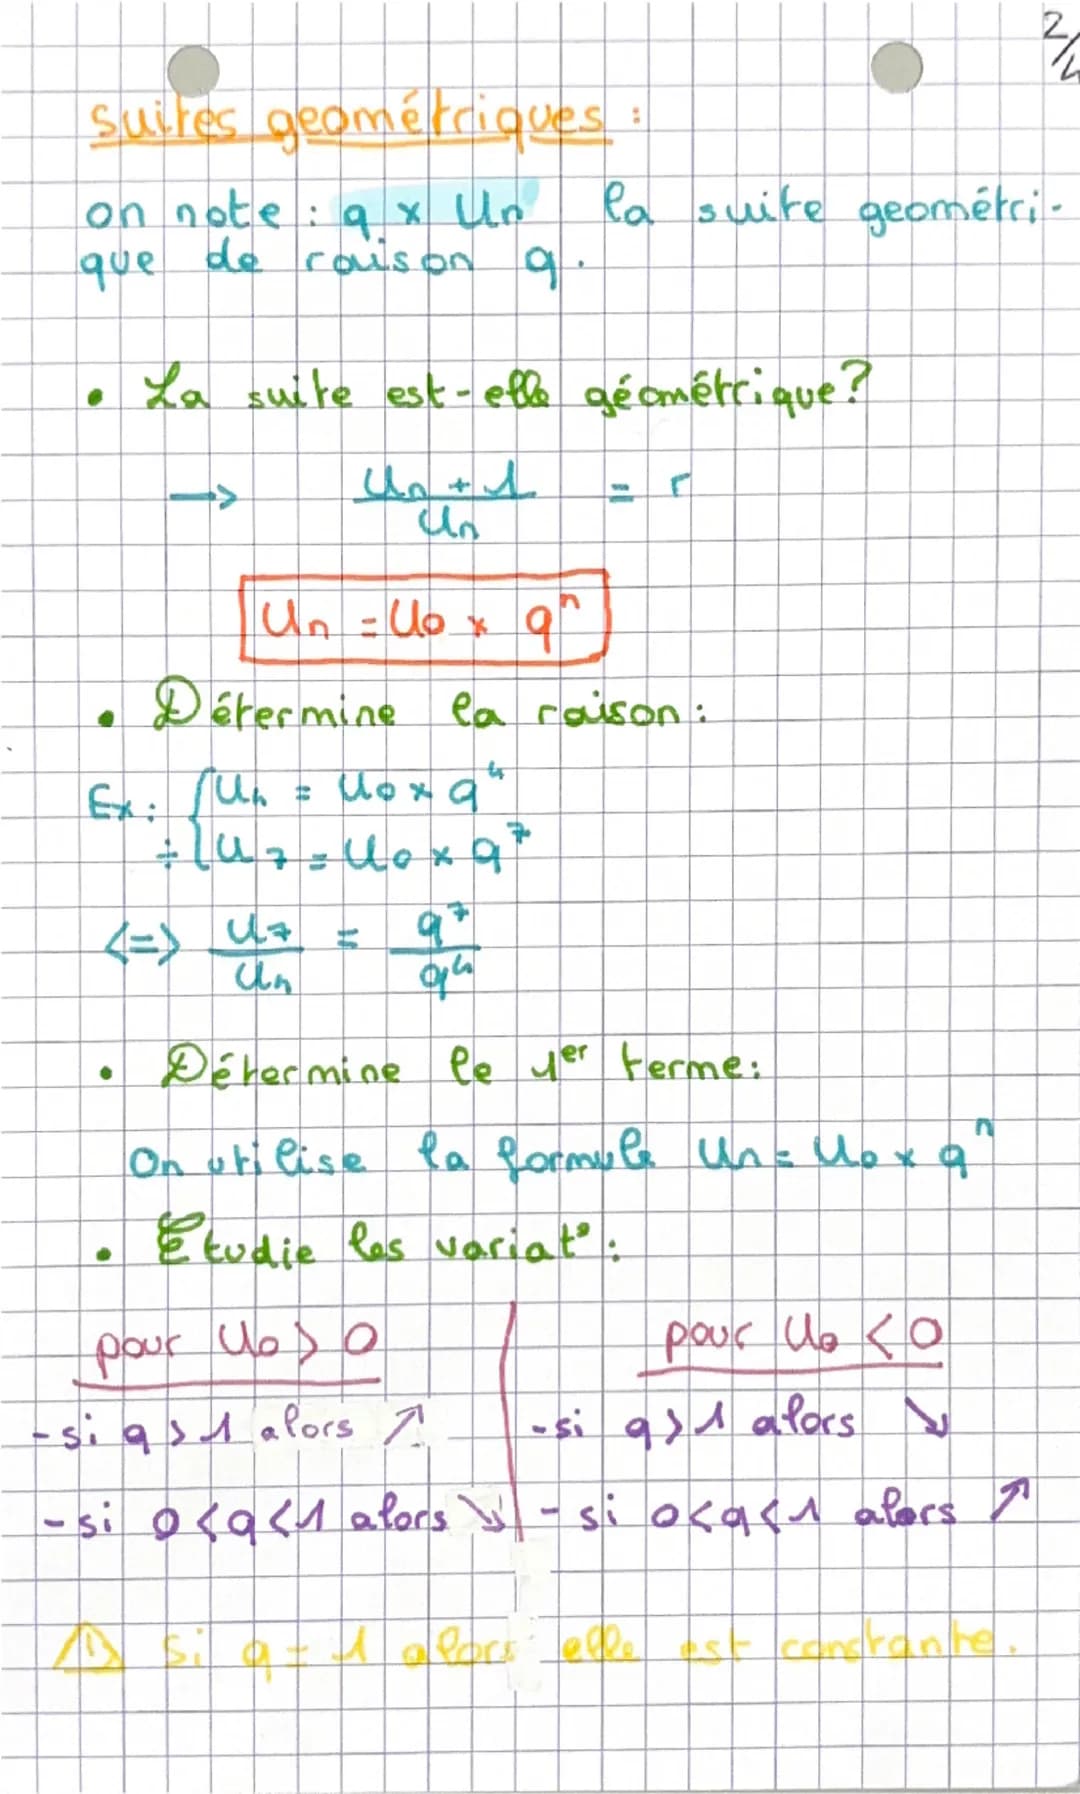 2/4
suites geométriques :
on note : q × Un la suite geométri-
que de raison q.
• La suite est-elle géométrique?
→ Un+1 / Un = r
Un = U0 × qⁿ
• Détermine la raison :
Ex : { U4 = U0 × q⁴
÷ { U7 = U0 × q⁷
<=> U7 / U4 = q⁷ / q⁴
• Détermine le 1er terme :
On utilise la formule Un = U0 × qⁿ
• Étudie les variat° :
pour U0 > 0
- si q > 1 alors ↗
- si 0 < q < 1 alors ↘
pour U0 < 0
- si q > 1 alors ↘
- si 0 < q < 1 alors ↗
⚠ Si q = 1 alors elle est constante.